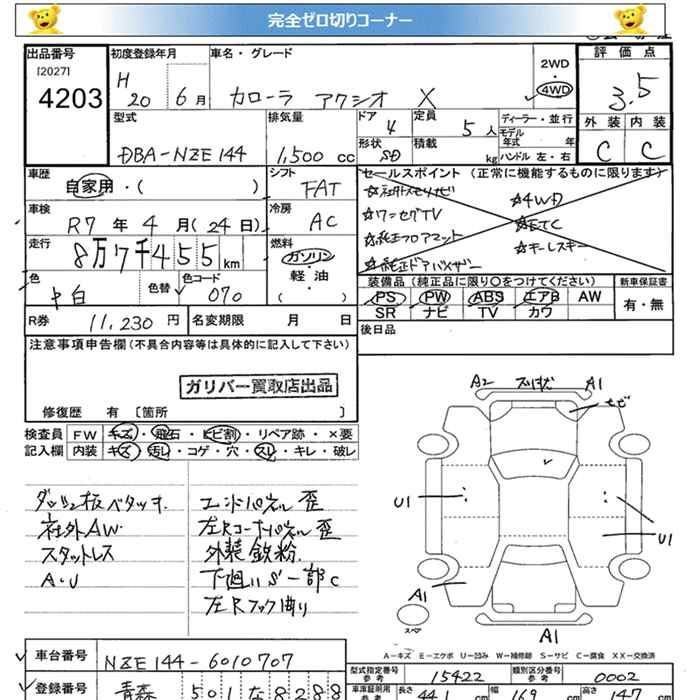 完全ゼロ切りコーナー
出品番号 初度登録年月 車名・グレード 2WD 評価点
[2027] H
4203 20 6月 カローラ アクシオ X 4WD 3.5
型式 排気量 ドア 4 定員 5人 ディーラー・並行 外装 内装
モデル年式 年
DBA-NZE144 1,500cc 形状 SD 積載 kg ハンドル 左・右 C C
車歴 自家用・( ) シフト FAT セールスポイント (正常に機能するものに限ります)
☆社外メモリナビ ☆4WD
車検 R7年4月(24日) 冷房 AC ☆ワンセグTV ☆ETC
☆純正フロアマット ☆キーレスキー
走行 8万7千455km 燃料 ガソリン・軽・油 ( ) ☆純正ドアバイザー
色 中白 色替 色コード 070 装備品 (純正品に限り○をつけてください) 新車保証書
PS PW ABS エアB AW 有・無
SR ナビ TV カワ
R券 11,230円 名変期限 月 日 後日品
注意事項申告欄 (不具合内容等は具体的に記入して下さい)
ガリバー買取店出品
修復歴 有 [箇所 ]
検査員 FW キズ・飛石・ヒビ割・リペア跡・×要
記入欄 内装 キズ・汚し・コゲ・穴・スレ・キレ・破レ
A2 A1
ダッシュ板ベタツキ エンドパネル歪
社外AW 左Rコーナーパネル歪
スタットレス 外装鉄粉
A・U 下廻りS一部C
左Rフック曲り
U1 U1
A1
スペア
A1
A-キズ E-エクボ U-凹み W-補修跡 S-サビ C-腐食 XX-交換済
車台番号 NZE144-6010707 型式指定番号 参考 15422 類別区分番号 参考 0002
登録番号 青森 501 な 8288 車庫証明用 参考 長さ 441 cm 幅 169 cm 高さ 147 cm